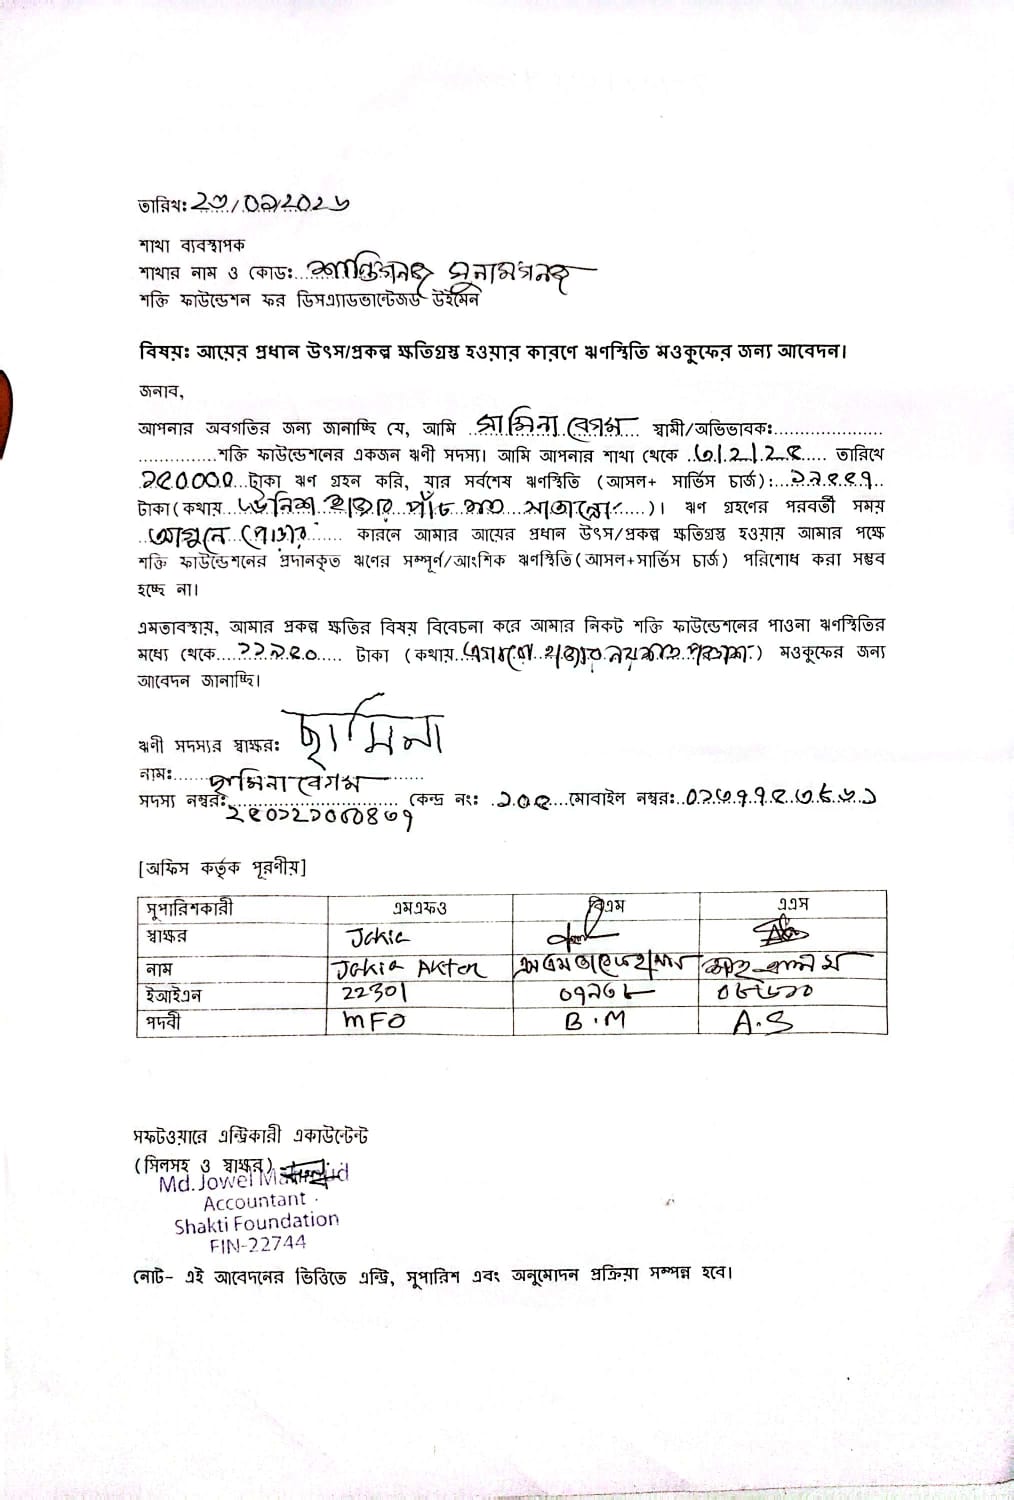 তারিখ: ২৩/০৯/২০২৬
শাখা ব্যবস্থাপক
শাখার নাম ও কোড: শান্তিগনজ সুনামগনজ
শক্তি ফাউন্ডেশন ফর ডিসএ্যাডভান্টেজড উইমেন
বিষয়: আয়ের প্রধান উৎস/প্রকল্প ক্ষতিগ্রস্ত হওয়ার কারণে ঋণস্থিতি মওকুফের জন্য আবেদন।
জনাব,
আপনার অবগতির জন্য জানাচ্ছি যে, আমি ছামিনা বেগম স্বামী/অভিভাবক:
শক্তি ফাউন্ডেশনের একজন ঋণী সদস্য। আমি আপনার শাখা থেকে তারিখে
টাকা ঋণ গ্রহন করি, যার সর্বশেষ ঋণস্থিতি (আসল+ সার্ভিস চার্জ):
টাকা (কথায় উনিশ হাজার পাঁচ শত )। ঋণ গ্রহণের পরবর্তী সময়
আগুনে পোড়ার কারনে আমার আয়ের প্রধান উৎস/প্রকল্প ক্ষতিগ্রস্ত হওয়ায় আমার পক্ষে
শক্তি ফাউন্ডেশনের প্রদানকৃত ঋণের সম্পূর্ণ/আংশিক ঋণস্থিতি (আসল+সার্ভিস চার্জ) পরিশোধ করা সম্ভব
হচ্ছে না।
এমতাবস্থায়, আমার প্রকল্প ক্ষতির বিষয় বিবেচনা করে আমার নিকট শক্তি ফাউন্ডেশনের পাওনা ঋণস্থিতির
মধ্যে থেকে ১১৯৫০ টাকা (কথায় এগারো হাজার নয়শত পঞ্চাশ) মওকুফের জন্য
আবেদন জানাচ্ছি।
ঋণী সদস্যর স্বাক্ষর: ছামিনা
নাম: ছামিনা বেগম
সদস্য নম্বর: কেন্দ্র নং: ১০৫ মোবাইল নম্বর:
[অফিস কর্তৃক পূরণীয়]
সুপারিশকারী এমএফও বিএম এএস
স্বাক্ষর Jakia
নাম Jakia Akter
ইআইএন 22301
পদবী MFO B.M A.S
সফটওয়ারে এন্ট্রিকারী একাউন্টেন্ট
(সিলসহ ও স্বাক্ষর)
Md. Jowel Mahmud
Accountant
Shakti Foundation
FIN-22744
নোট- এই আবেদনের ভিত্তিতে এন্ট্রি, সুপারিশ এবং অনুমোদন প্রক্রিয়া সম্পন্ন হবে।